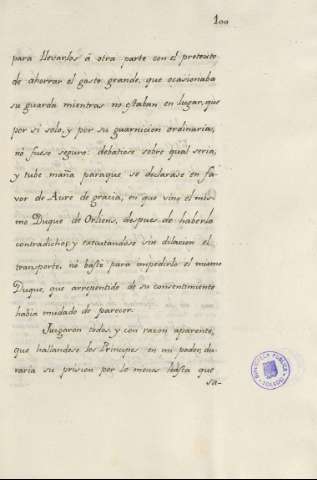 100
para llevarlos á otra parte con el pretexto
de ahorrar el gasto grande, que ocasionaba
su guarda mientras no estaban en lugar, que
por si solo, y por su guarnicion ordinaria,
no fuese seguro: debatiose sobre qual seria,
y tube maña paraque se declarase en fa-
vor de Aure de gracia, en que vino el mis-
mo Duque de Orliens, despues de haberlo
contradicho, y executandose sin dilacion el
transporte, no bastó para impedirlo el mismo
Duque, que arrepentido de su consentimiento
habia mudado de parecer.
Juzgaron todos, y con razon aparente,
que hallandose los Principes en mi poder, du-
raria su prision por lo menos hasta que
sa-
BIBLIOTECA PUBLICA
TOLEDO